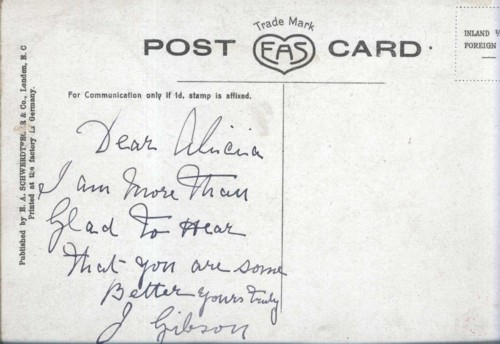 Trade Mark
POST EAS CARD
INLAND ½
FOREIGN
For Communication only if 1d. stamp is affixed.
Published by E. A. SCHWERDTFEGER & Co., London, E. C
Printed at the factory in Germany.
Dear Alicia
I am More Than
Glad To Hear
That you are some
Better yours truly
J Gibson